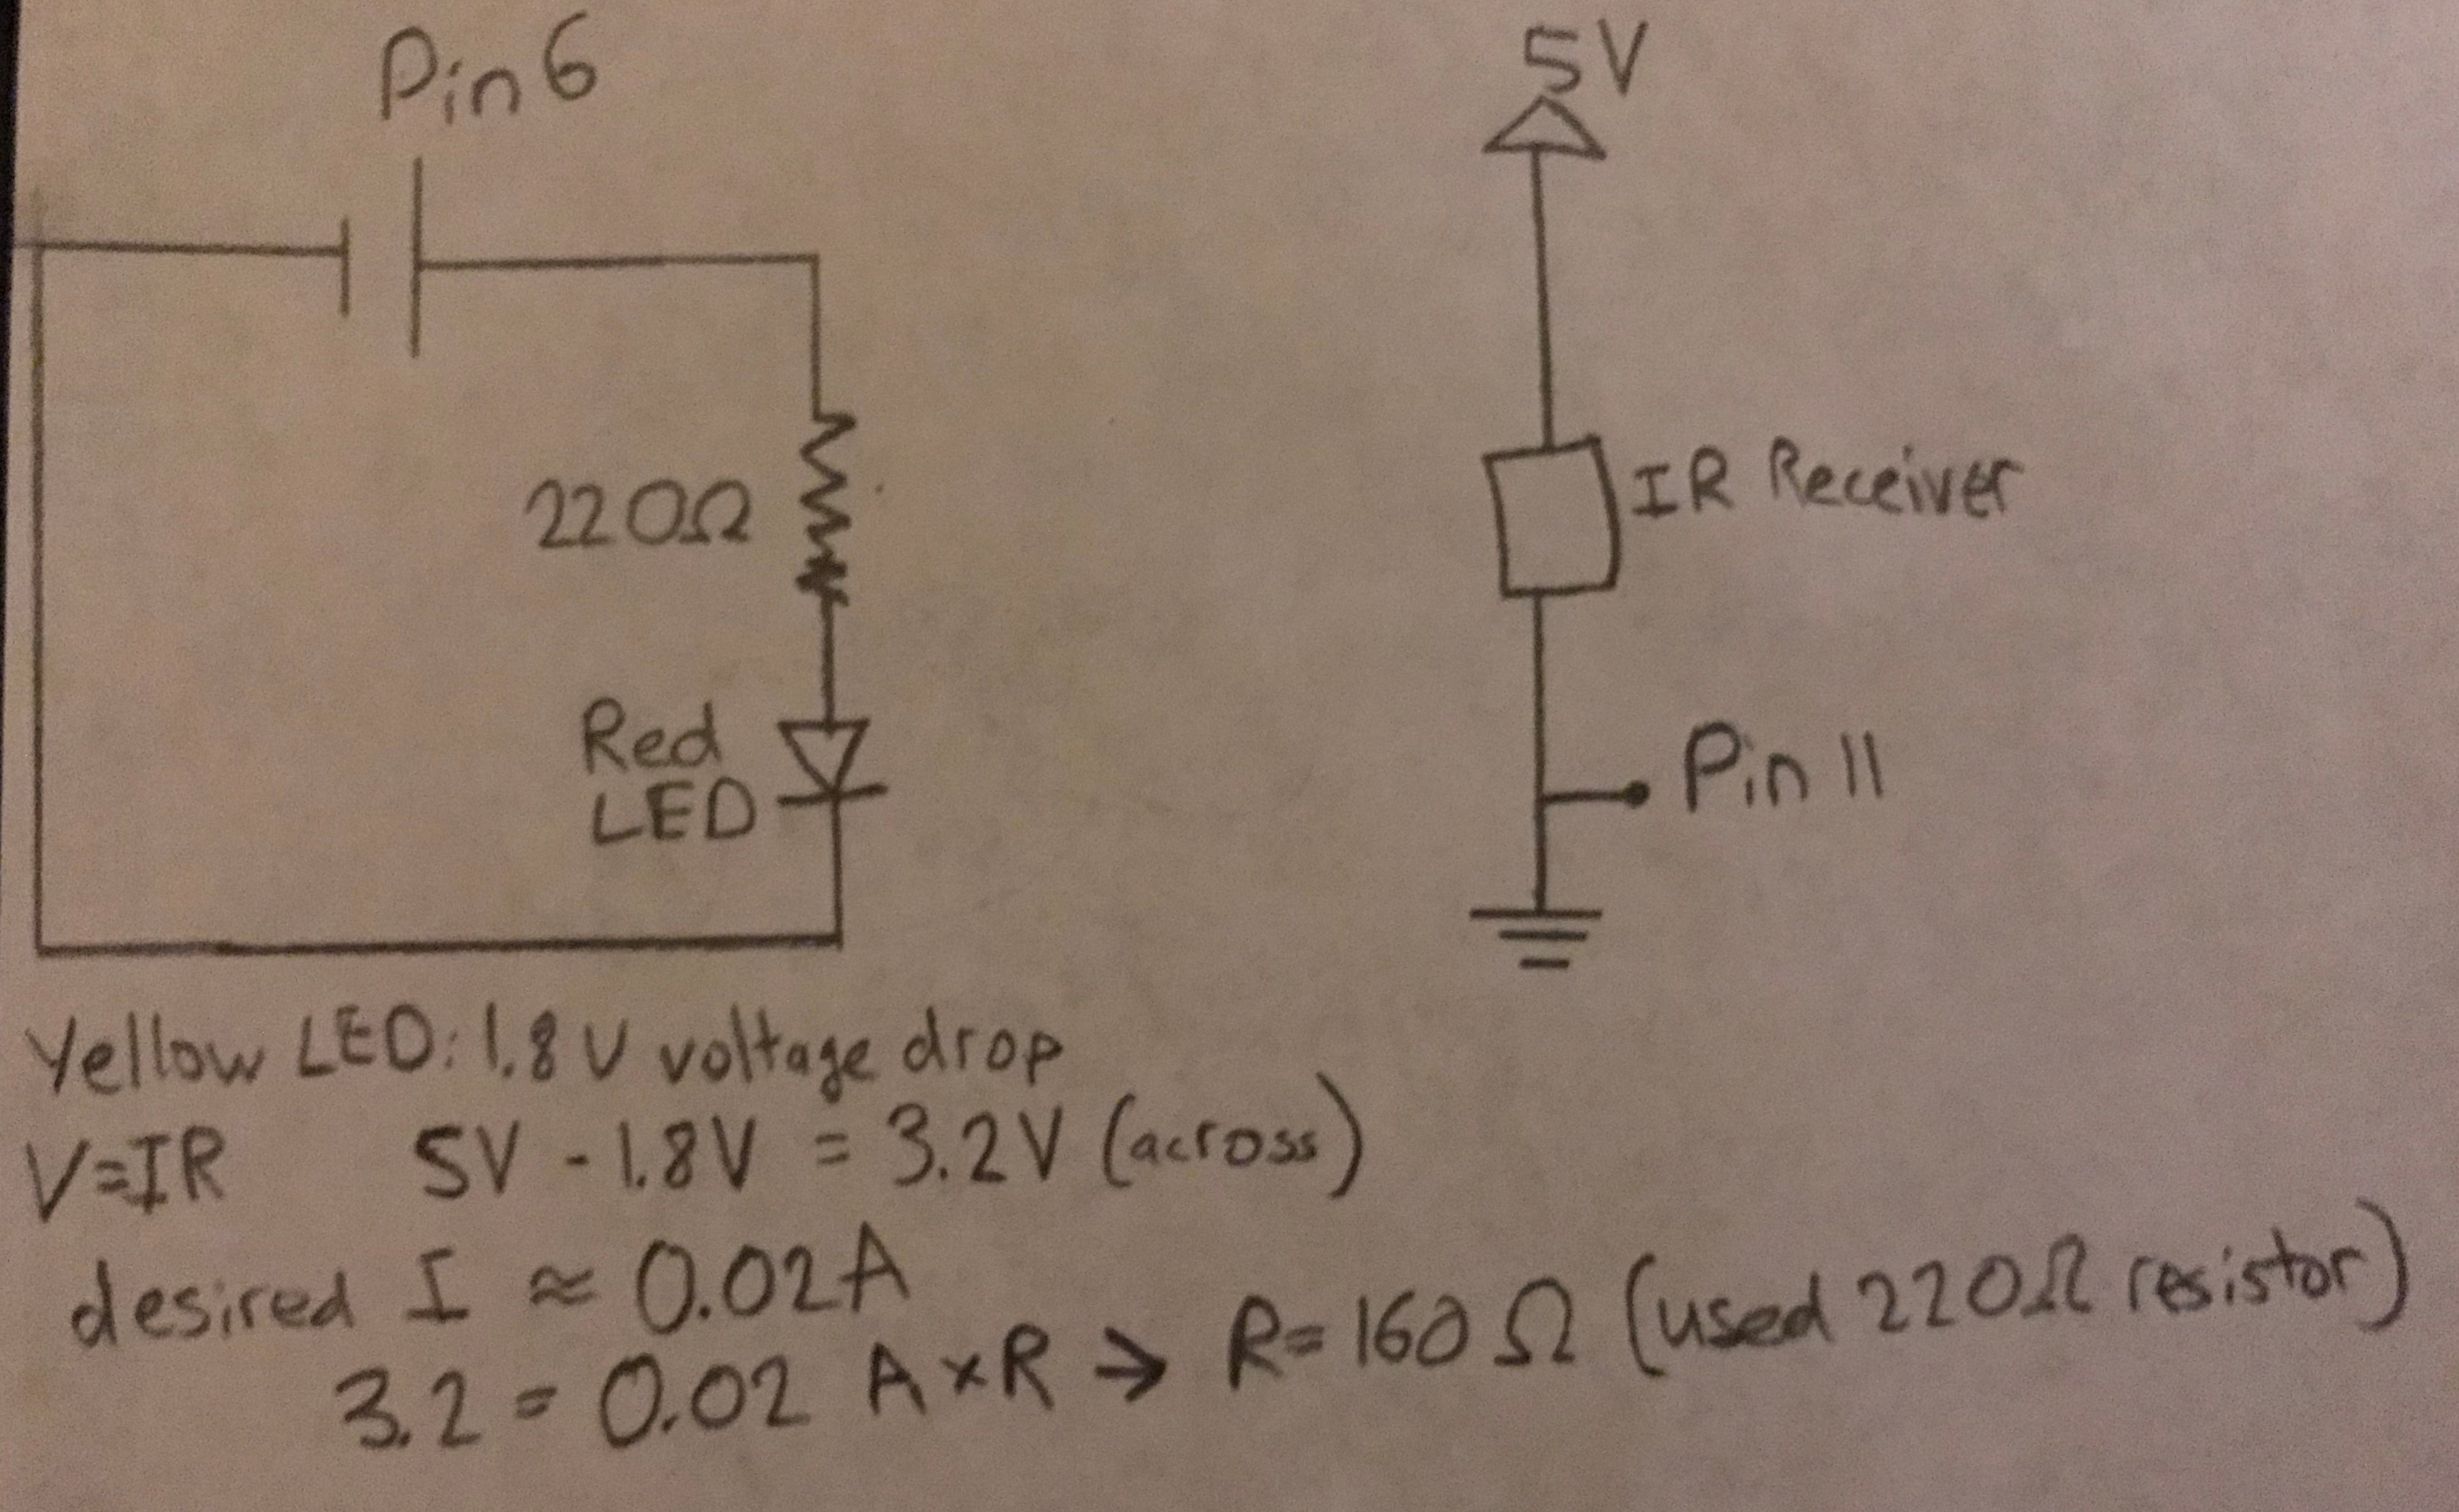 Pin 6
220Ω
Red
LED
5V
IR Receiver
Pin 11
Yellow LED: 1.8V voltage drop
V=IR 5V - 1.8V = 3.2V (across)
desired I ≈ 0.02A
3.2 = 0.02 A x R → R = 160 Ω (used 220Ω resistor)